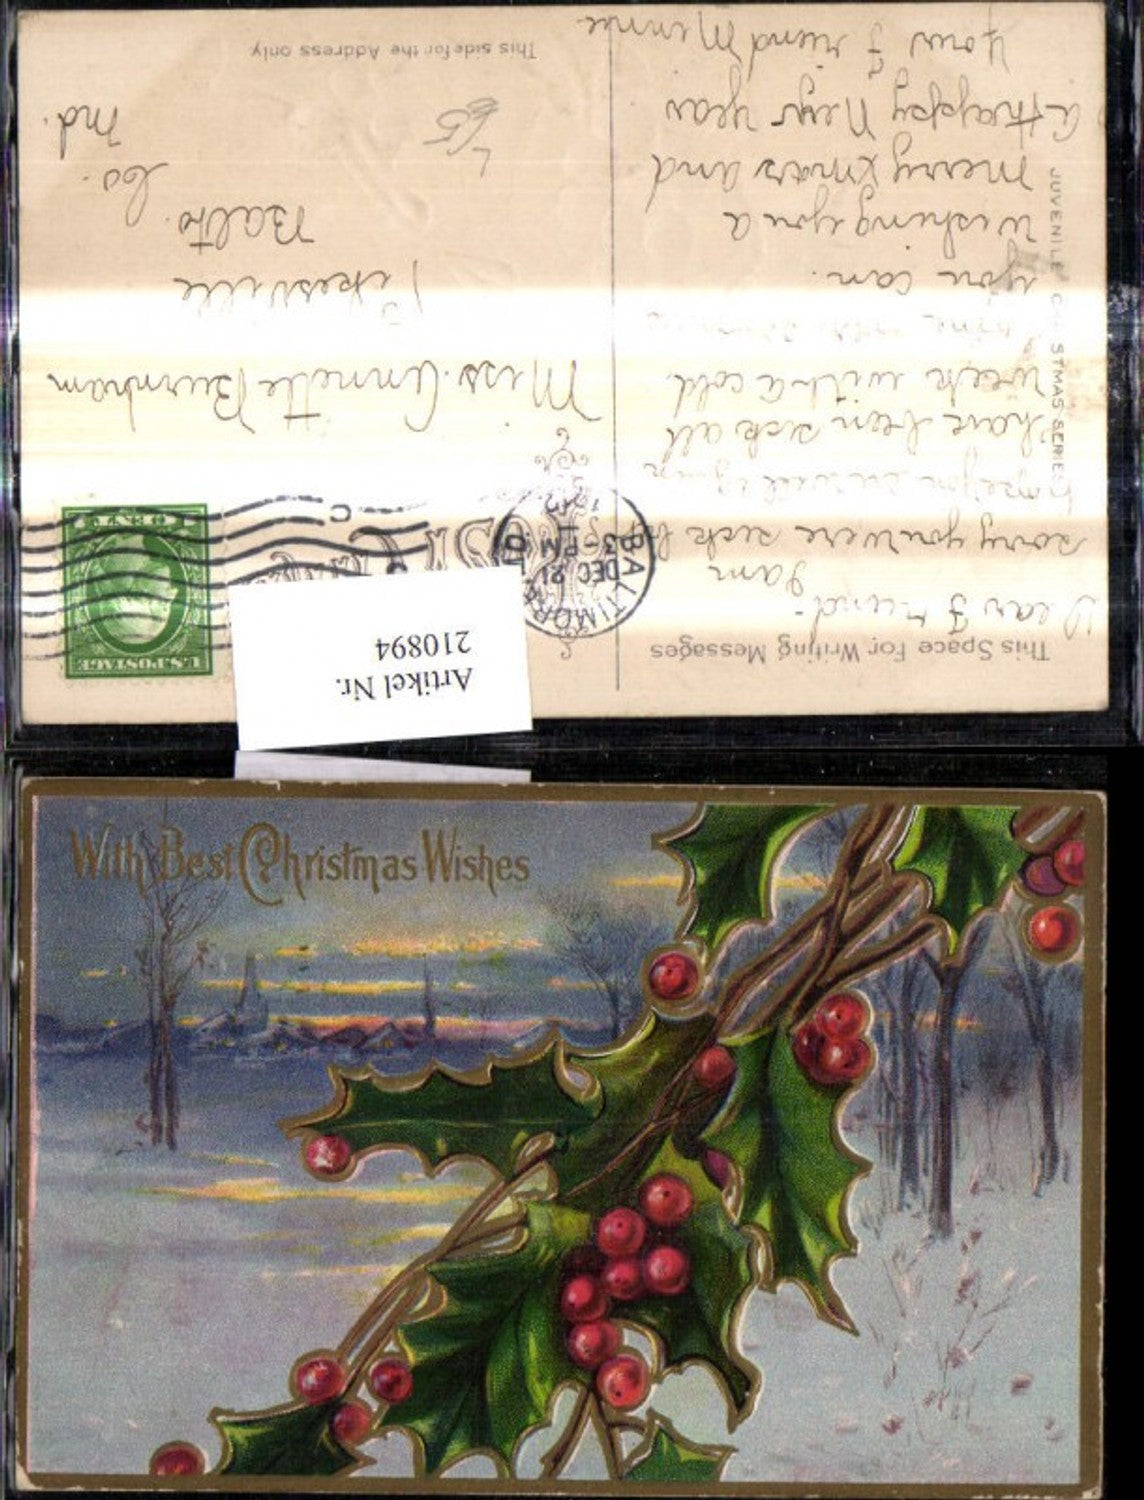 This Space For Writing Messages
Dear Friend-
I am
sorry you were sick
hope you
have been sick all
week with a cold
you can.
Wishing you a
merry xmas and
A Happy New Year
Your Friend Minnie
JUVENILE CHRISTMAS SERIES
BALTIMORE
DEC 21
3-PM
U.S. POSTAGE
Miss. Annette Burnham
Pikesville
Balto. Co.
Md.
This side for the Address only
Artikel Nr.
210894
With Best Christmas Wishes